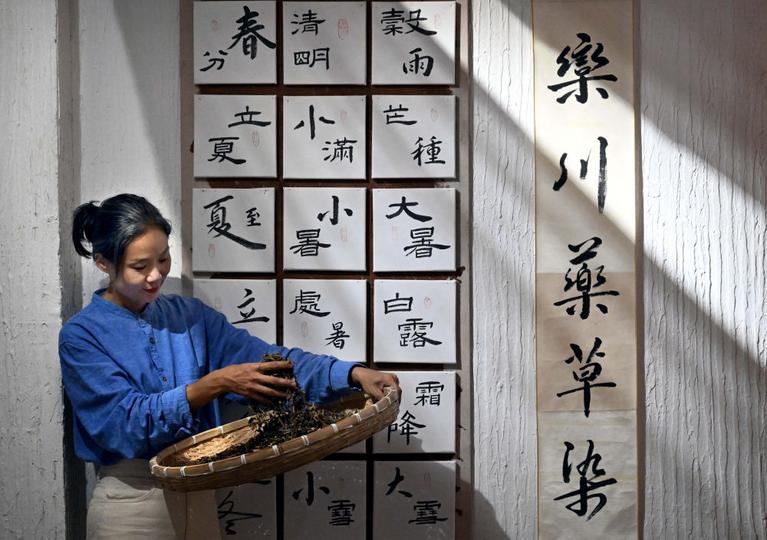 春分
清明
穀雨
立夏
小滿
芒種
夏至
小暑
大暑
立
處暑
白露
霜降
冬
小雪
大雪
欒川藥草染